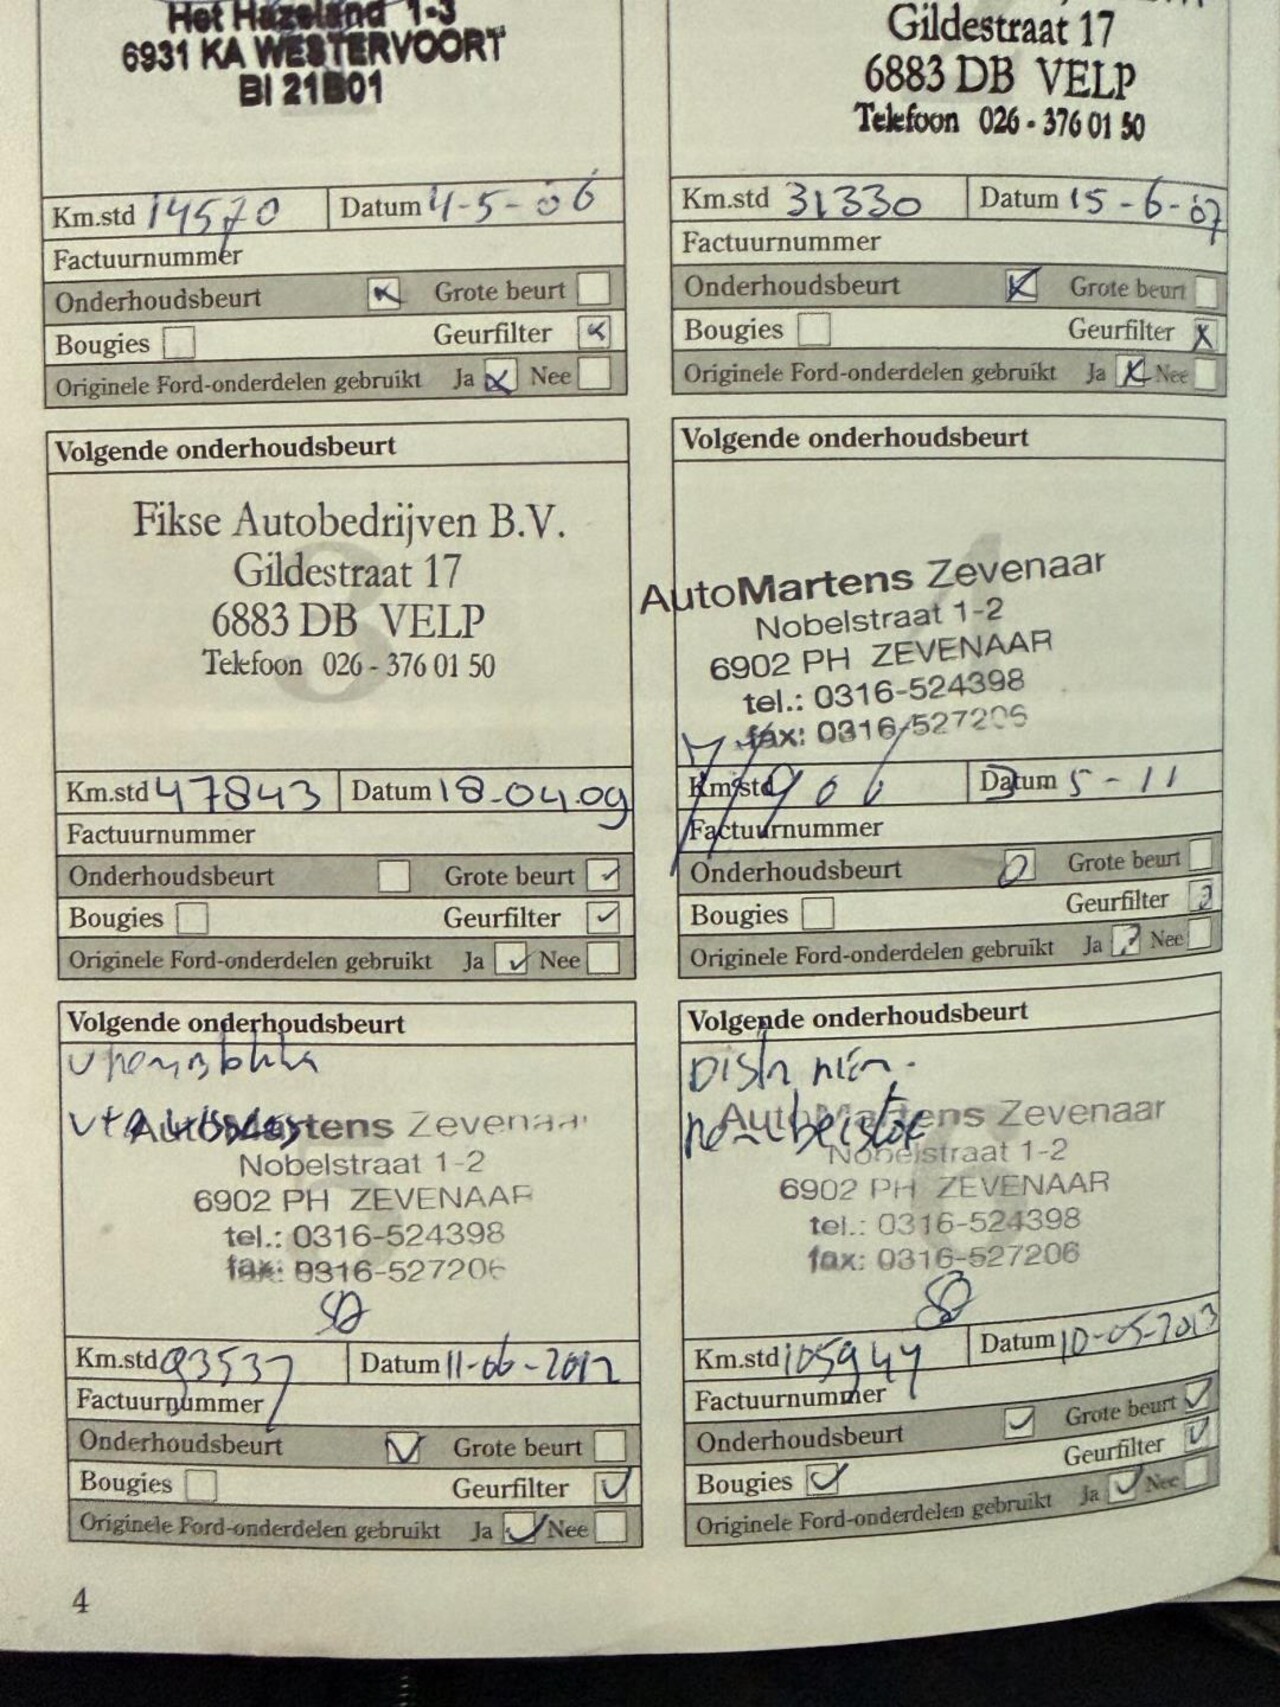 Het Hazeland 1-3
6931 KA WESTERVOORT
BI 21B01
Km.std 14570 Datum 4-5-06
Factuurnummer
Onderhoudsbeurt Grote beurt
Bougies Geurfilter
Originele Ford-onderdelen gebruikt Ja Nee
Gildestraat 17
6883 DB VELP
Telefoon 026 - 376 01 50
Km.std 31330 Datum 15-6-07
Factuurnummer
Onderhoudsbeurt Grote beurt
Bougies Geurfilter
Originele Ford-onderdelen gebruikt Ja Nee
Volgende onderhoudsbeurt
3
Fikse Autobedrijven B.V.
Gildestraat 17
6883 DB VELP
Telefoon 026 - 376 01 50
Km.std 47843 Datum 18-04-09
Factuurnummer
Onderhoudsbeurt Grote beurt
Bougies Geurfilter
Originele Ford-onderdelen gebruikt Ja Nee
Volgende onderhoudsbeurt
4
AutoMartens Zevenaar
Nobelstraat 1-2
6902 PH ZEVENAAR
tel.: 0316-524398
fax: 0316-527206
Km.std Datum 5-11
Factuurnummer
Onderhoudsbeurt Grote beurt
Bougies Geurfilter
Originele Ford-onderdelen gebruikt Ja Nee
Volgende onderhoudsbeurt
AutoMartens Zevenaar
Nobelstraat 1-2
6902 PH ZEVENAAR
tel.: 0316-524398
fax: 0316-527206
Km.std 93537 Datum 11-06-2012
Factuurnummer
Onderhoudsbeurt Grote beurt
Bougies Geurfilter
Originele Ford-onderdelen gebruikt Ja Nee
Volgende onderhoudsbeurt
Distr riem.
AutoMartens Zevenaar
Nobelstraat 1-2
6902 PH ZEVENAAR
tel.: 0316-524398
fax: 0316-527206
Km.std 105944 Datum 10-05-2013
Factuurnummer
Onderhoudsbeurt Grote beurt
Bougies Geurfilter
Originele Ford-onderdelen gebruikt Ja Nee
4